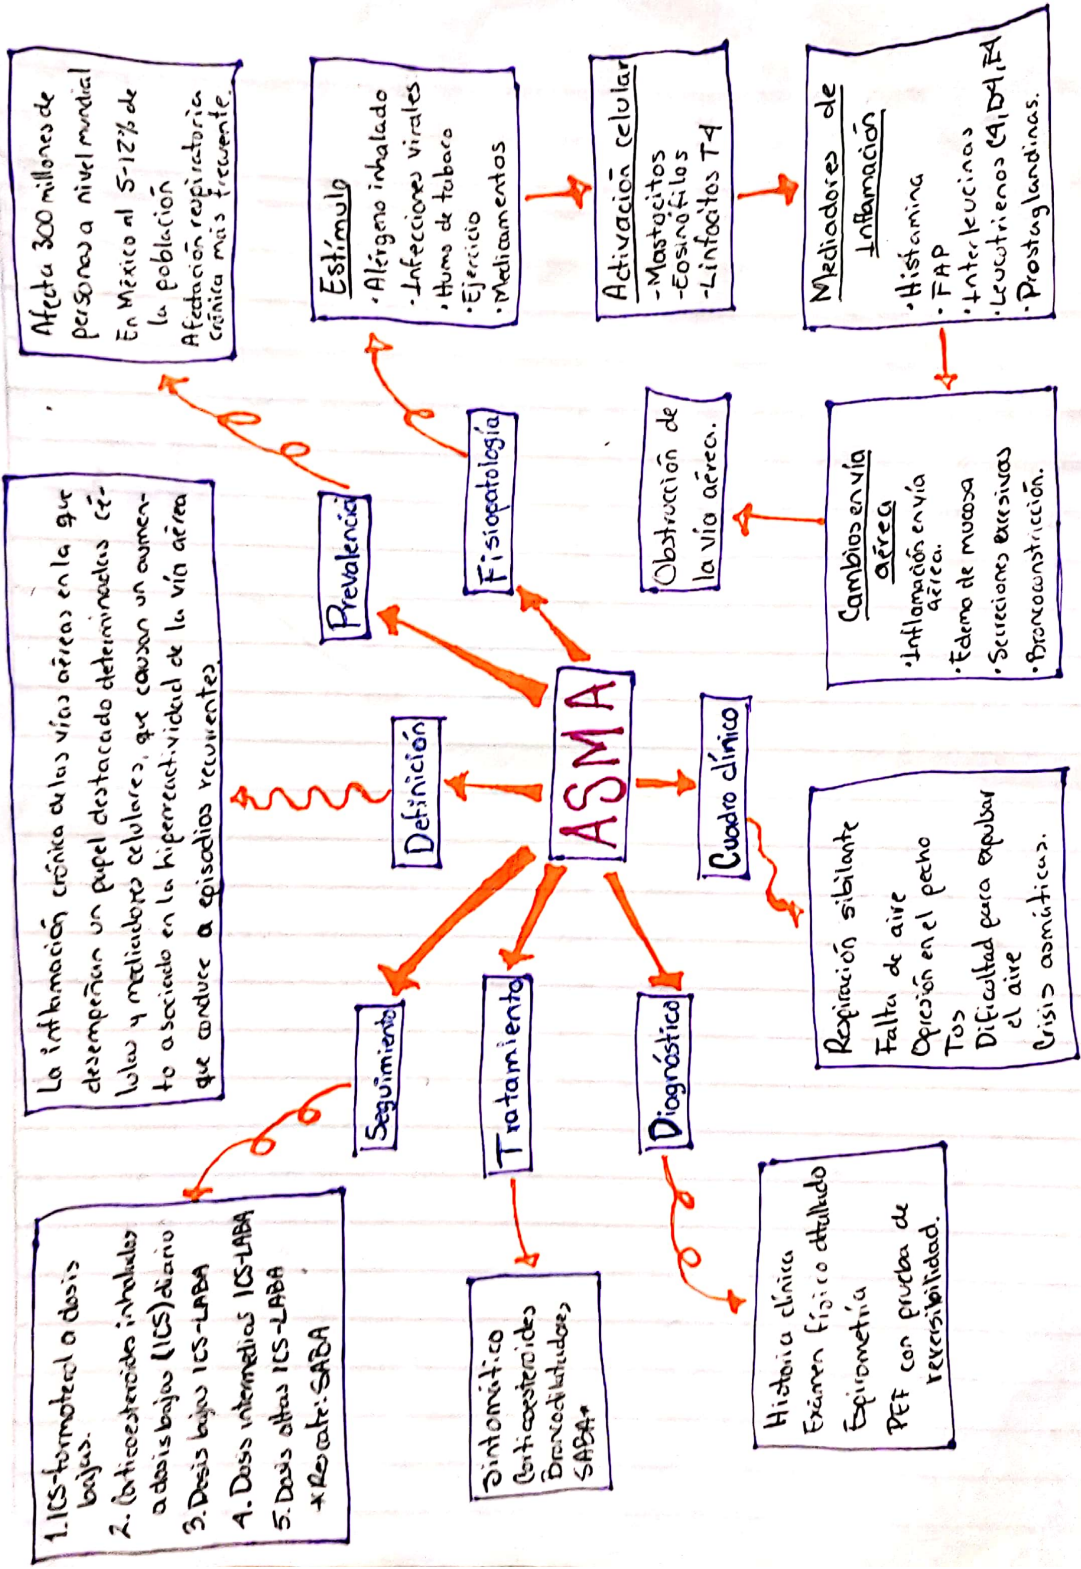 ASMA
Definición
La inflamación crónica de las vías aéreas en la que
desempeñan un papel destacado determinadas cé-
lulas y mediadores celulares, que causan un aumen-
to asociado en la hiperreactividad de la vía aérea
que conduce a episodios recurrentes.
Prevalencia
Afecta 300 millones de
personas a nivel mundial
En México al 5-12% de
la población
Afectación respiratoria
crónica más frecuente.
Fisiopatología
Estímulo
· Alérgeno inhalado
· Infecciones virales
· Humo de tabaco
· Ejercicio
· Medicamentos
Activación celular
- Mastocitos
- Eosinófilos
- Linfocitos T4
Mediadores de
Inflamación
· Histamina
· FAP
· Interleucinas
· Leucotrienos C4, D4, E4
· Prostaglandinas.
Cambios en vía
aérea
· Inflamación en vía
aérea.
· Edema de mucosa
· Secreciones excesivas
· Broncoconstricción.
Obstrucción de
la vía aérea.
Cuadro clínico
Respiración sibilante
Falta de aire
Opresión en el pecho
Tos
Dificultad para expulsar
el aire
Crisis asmáticas.
Diagnóstico
Historia clínica
Exámen físico detallado
Espirometría
PEF con prueba de
reversibilidad.
Tratamiento
Sintomático
Corticoesteroides
Broncodilatadores
SABA*
Seguimiento
1. ICS-formoterol a dosis
bajas.
2. Corticoesteroides inhalados
a dosis bajas (ICS) diario
3. Dosis bajas ICS-LABA
4. Dosis intermedias ICS-LABA
5. Dosis altas ICS-LABA
*Rescate: SABA